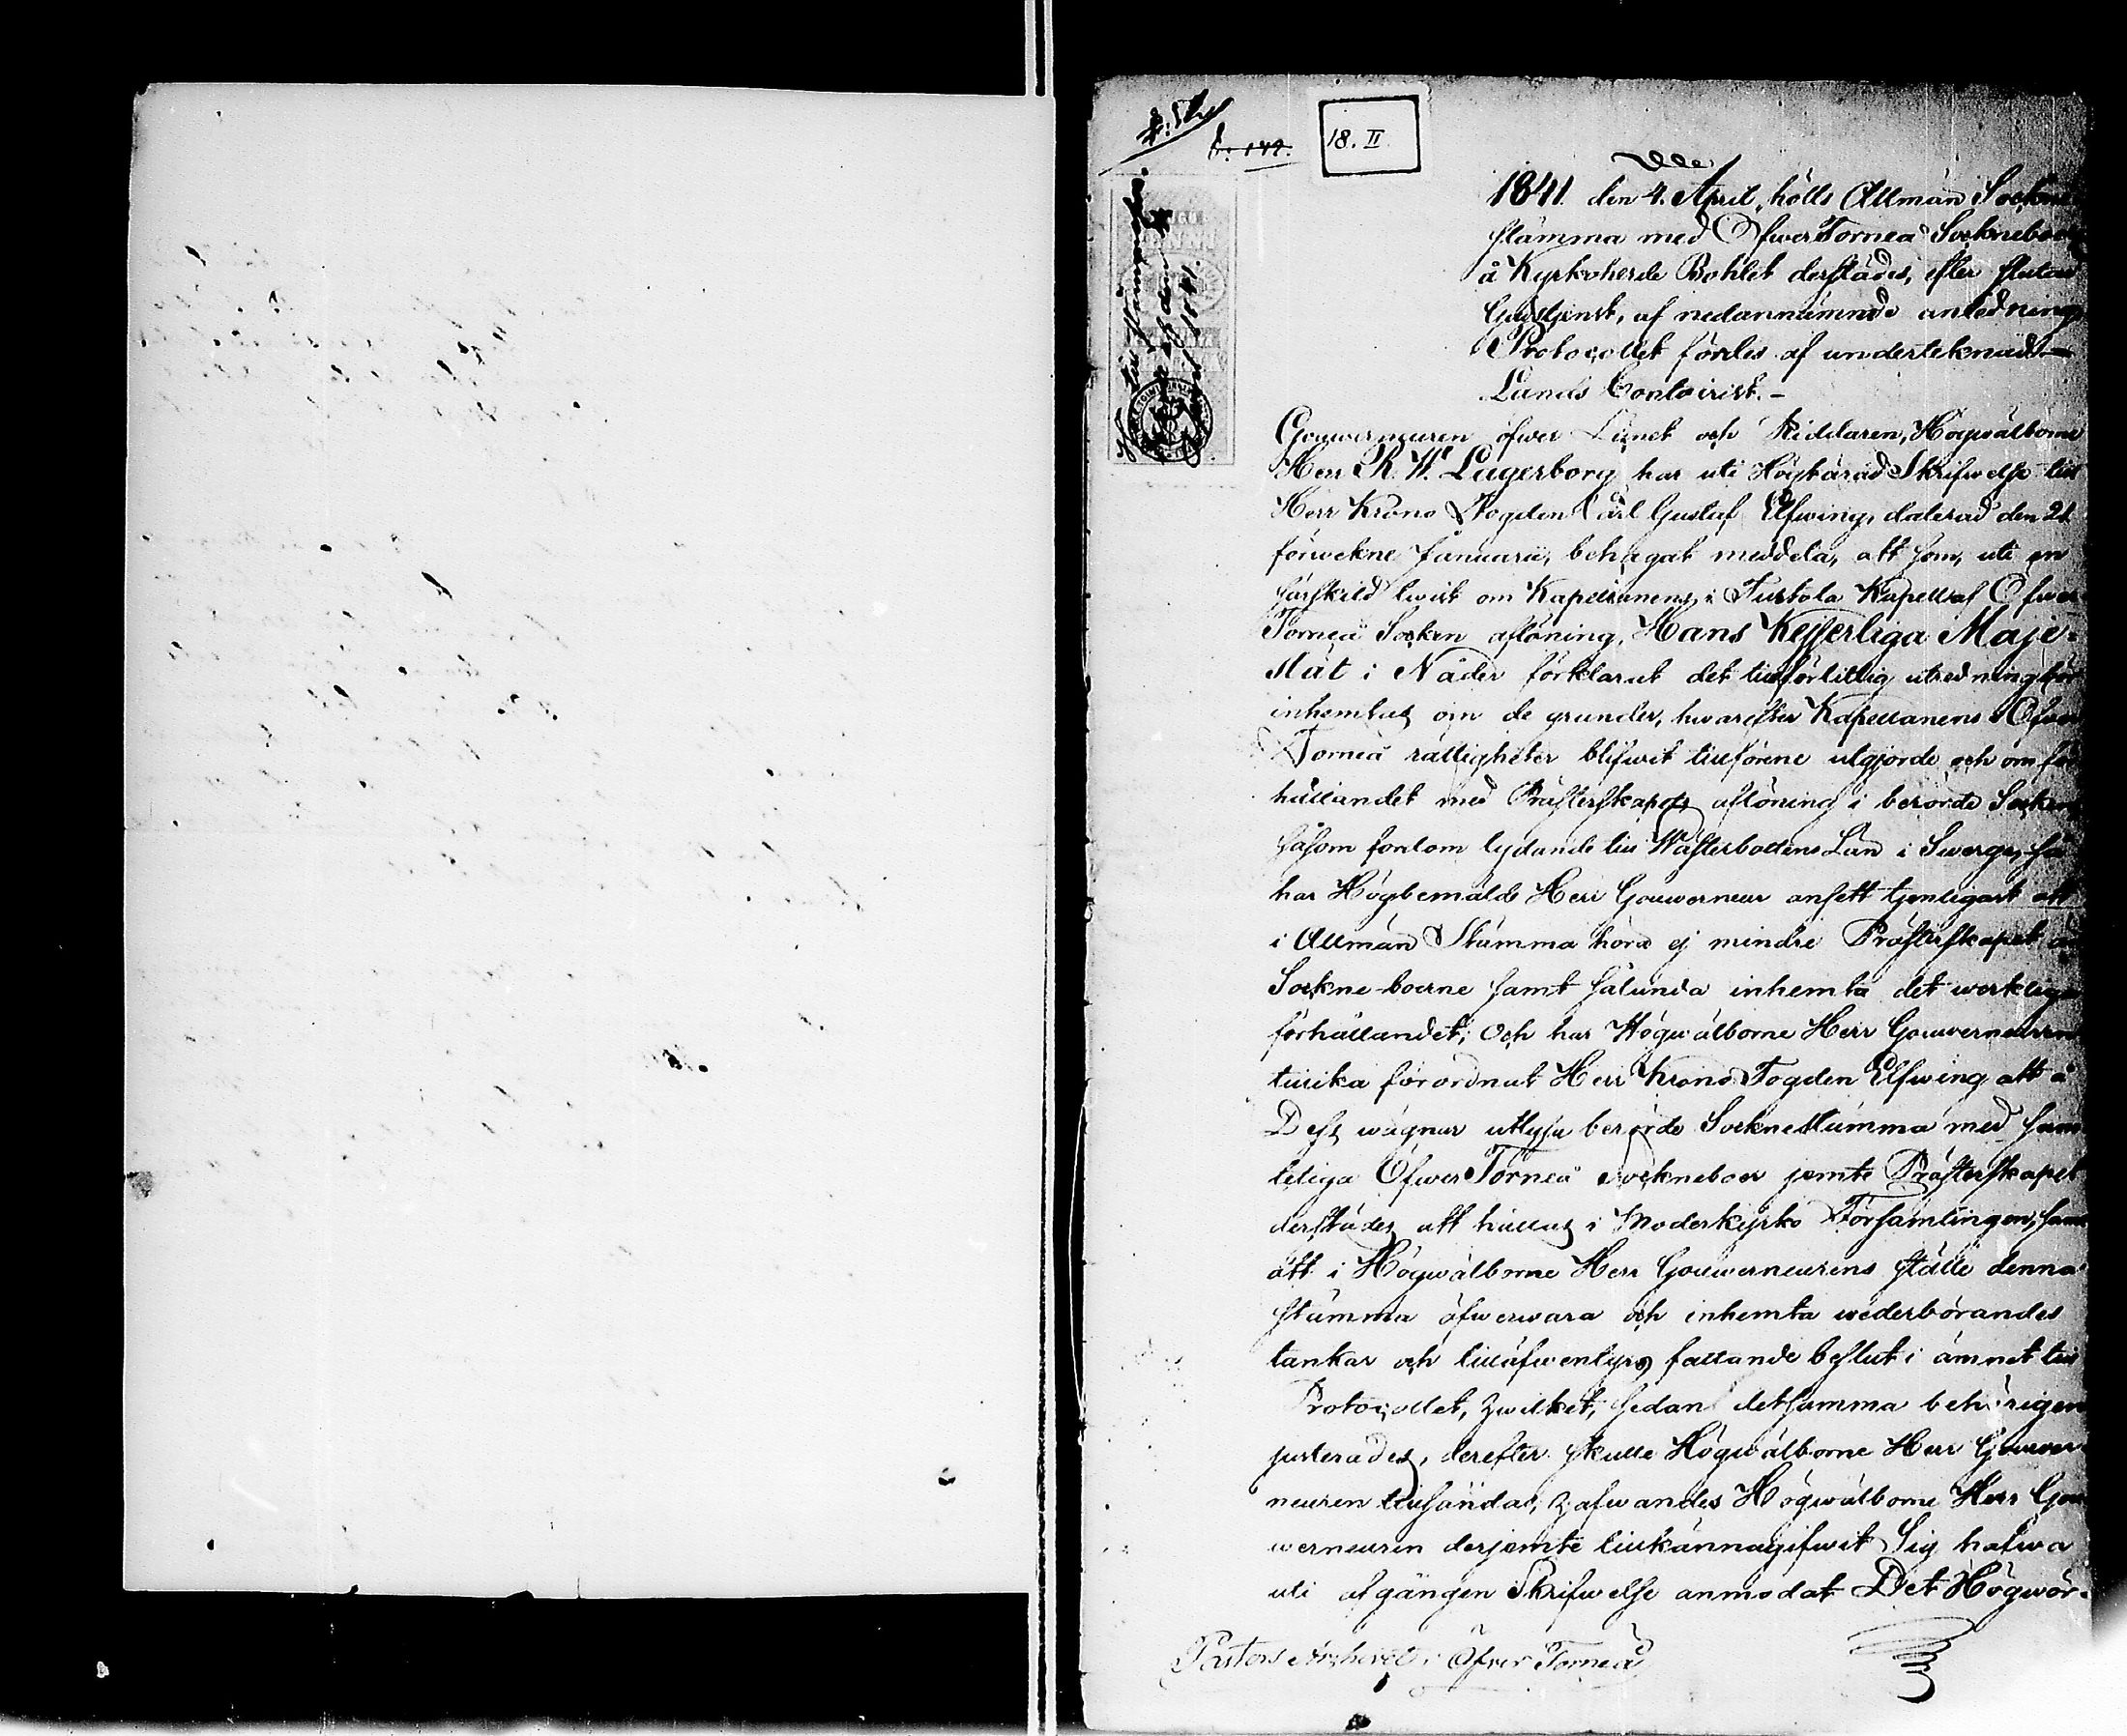 18. II
1841 den 4. April, hölls Allmän Sockne
stämma med ÖfwerTorneå Sockneboer
å Kyrkoherde Bohlet derstädes, efter slutad
Gudstjenst, af nedannämnde anledning,
Protocollet fördes af undertecknad
Lands Contoirist. –
Gouverneuren öfwer Länet och Riddaren, Högwälborne
Herr R. W. Lagerborg har uti Högtärad Skrifwelse till
Herr Krono Fogden Carl Gustaf Elfwing, daterad den 21
förwekne Januarii, behagat meddela, att som, uti en
särskild twist om Kapellanens i Turtola Kapell af Öfwer
Torneå Socken aflöning, Hans Kejserliga Maje-
stät i Nåder förklarat det tillförlitlig utredning bör
inhemtas om de grunder, hwarefter Kapellanens i Öfwer
Torneå rättigheter blifwit tillförene utgjorde och om för
hållandet med Prästerskapets aflöning i berörde Socken
såsom fordom lydande till Wästerbottens Län i Swerge, så
har Högbemälde Herr Gouverneur ansett tjenligast att
i Allmän Stämma höra ej mindre Prästerskapet än
Sockne-boerne samt sålunda inhemta det werkliga
förhållandet; Och har Högwälborne Herr Gouverneuren
tillika förordnat Herr Krono Fogden Elfwing att å
Dess wägnar utlysa berörde Sockne stämma med sam
teliga ÖfwerTorneå sockneboer jemte Prästerskapet
derstädes att hållas i Moderkyrko Församlingen, samt
att i Högwälborne Herr Gouverneurens ställe denna
stämma öfwerwara och inhemta wederbörandes
tankar och tilläfwentyrs fallande beslut i ämnet till
Protocollet, hwilket, sedan detsamma behörigen
justerades, derefter skulle Högwälborne Herr Gouver
neuren tillsändas; hafwandes Högwälborne Herr Gou
werneuren derjemte tillkännagifwit Sig hafwa
uti afgången Skrifwelse anmodat Det Högwör-
Pastors Archivet i Öfver Torneå